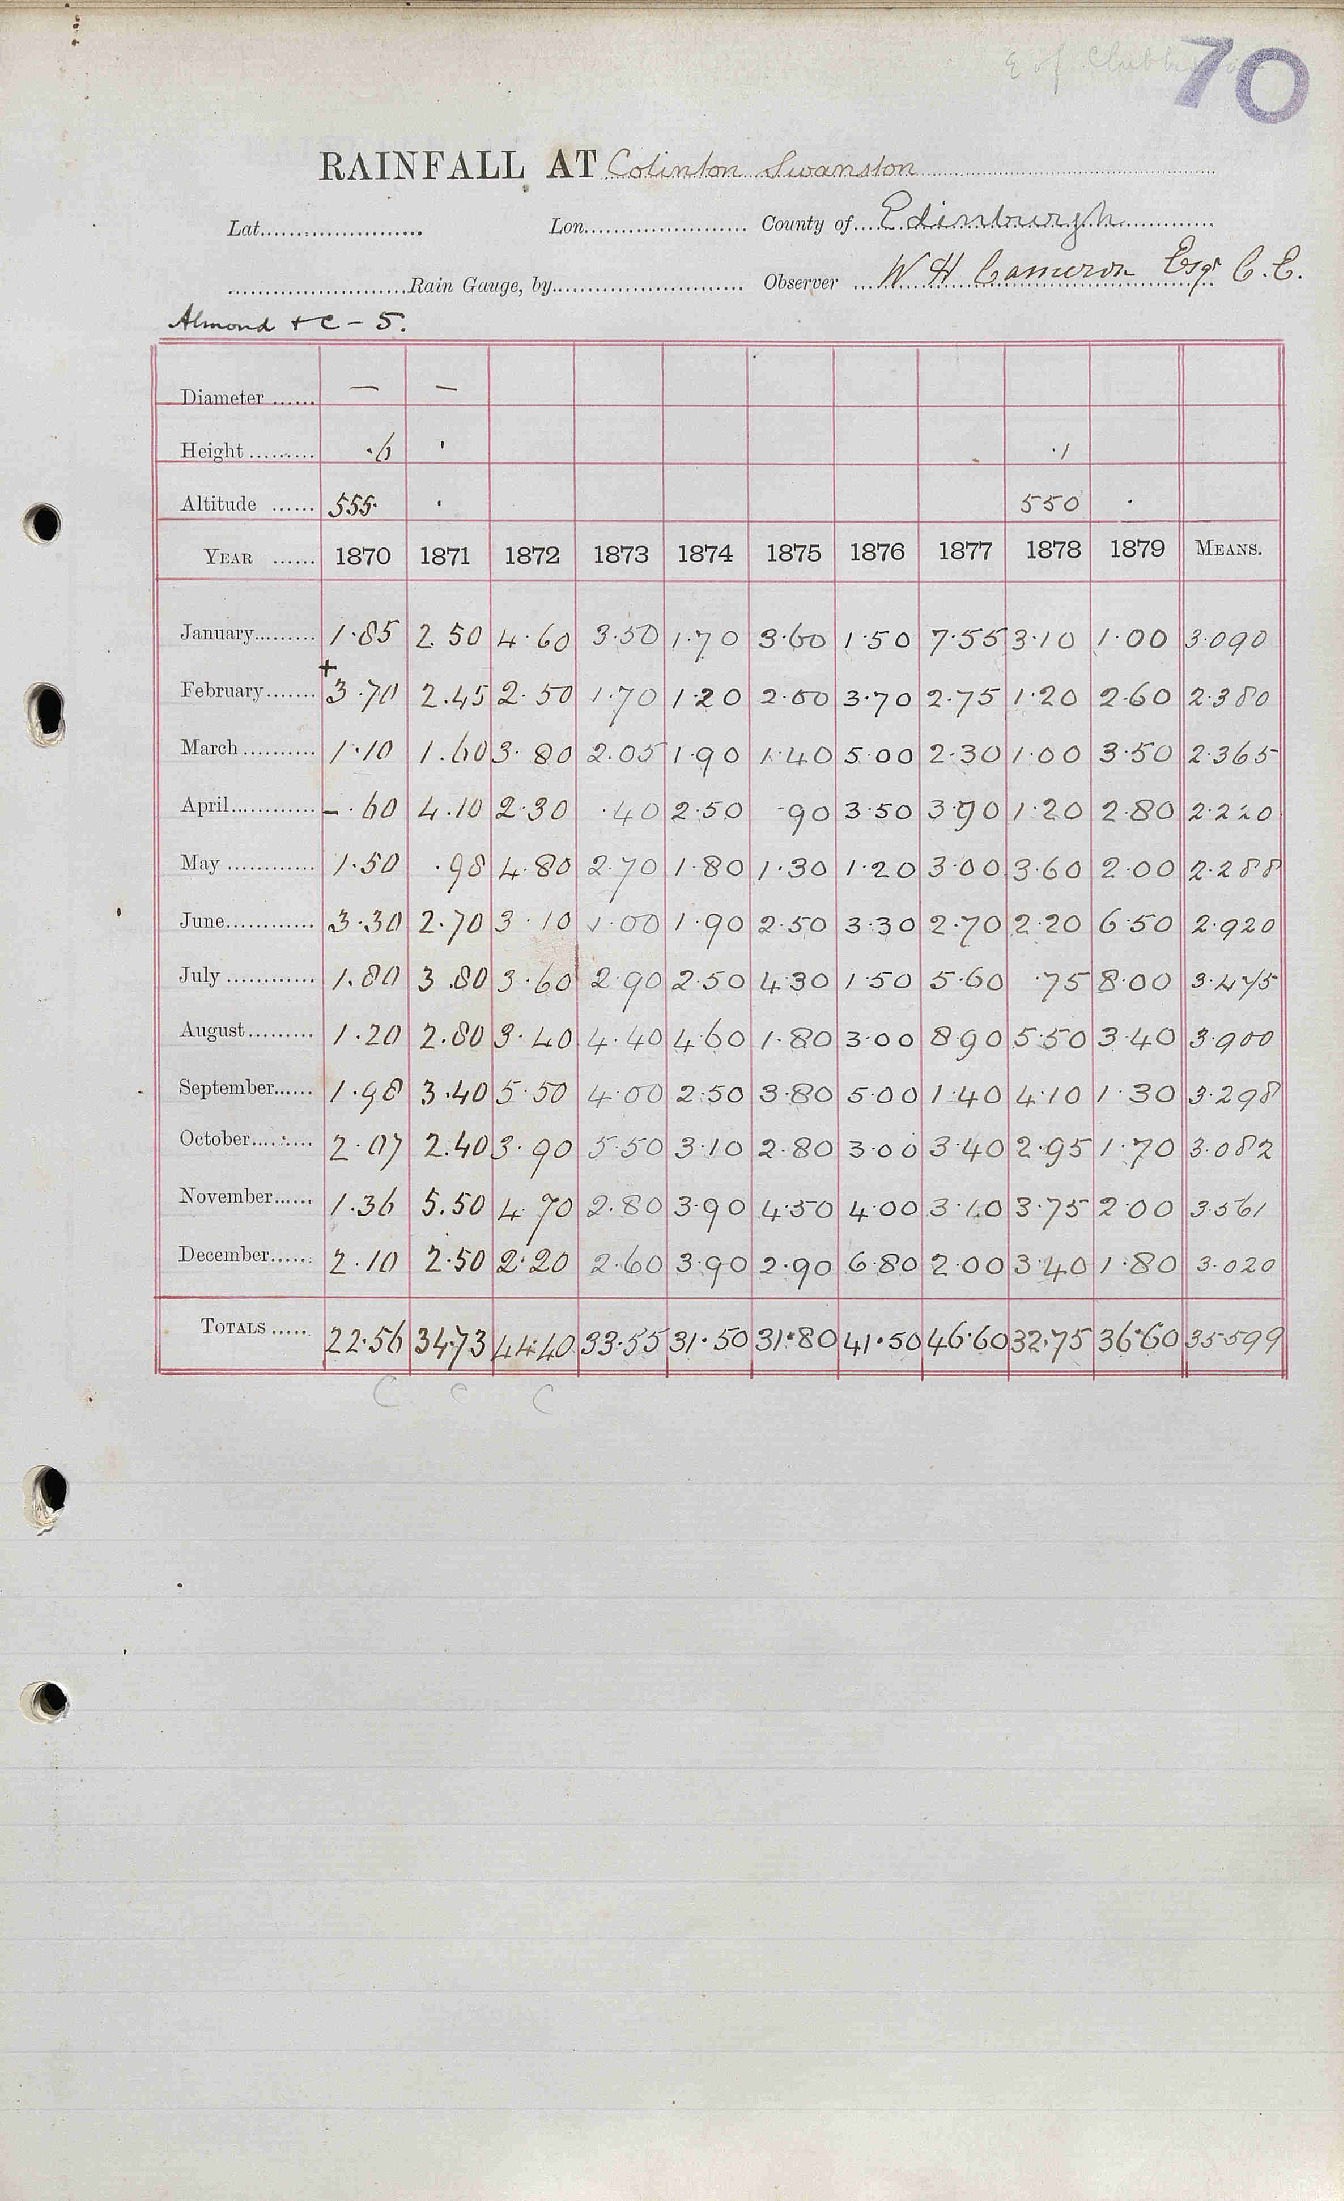 70
RAINFALL AT Colinton Swanston
Lat. Lon. County of Edinburgh
Rain Gauge, by Observer W H Cameron Esqr C.E.
Almond & C - 5.
Diameter — —
Height ·6 ' ·1
Altitude 555· · 550 ·
YEAR 1870 1871 1872 1873 1874 1875 1876 1877 1878 1879 MEANS.
January 1·85 2.50 4·60 3·50 1·70 3·60 1·50 7·55 3·10 1·00 3·090
+
February 3·70 2.45 2·50 1·70 1·20 2·00 3·70 2·75 1·20 2·60 2·380
March 1·10 1.60 3·80 2·05 1·90 1·40 5·00 2·30 1·00 3·50 2·365
April - ·60 4.10 2·30 ·40 2·50 ·90 3·50 3·90 1·20 2·80 2·220
May 1·50 ·98 4·80 2·70 1·80 1·30 1·20 3·00 3·60 2·00 2·288
June 3·30 2·70 3·10 1·00 1·90 2·50 3·30 2·70 2·20 6·50 2·920
July 1.80 3.80 3·60 2·90 2·50 4·30 1·50 5·60 ·75 8·00 3·475
August 1·20 2.80 3·40 4·40 4·60 1·80 3·00 8·90 5·50 3·40 3·900
September 1·98 3·40 5·50 4·00 2·50 3·80 5·00 1·40 4·10 1·30 3·298
October 2·07 2.40 3·90 5·50 3·10 2·80 3·00 3·40 2·95 1·70 3·082
November 1·36 5.50 4·70 2·80 3·90 4·50 4·00 3·10 3·75 2·00 3·561
December 2·10 2·50 2·20 2·60 3·90 2·90 6·80 2·00 3·40 1·80 3·020
TOTALS 22·56 34·73 44·40 33·55 31·50 31·80 41·50 46·60 32·75 36·60 35·599
C C C